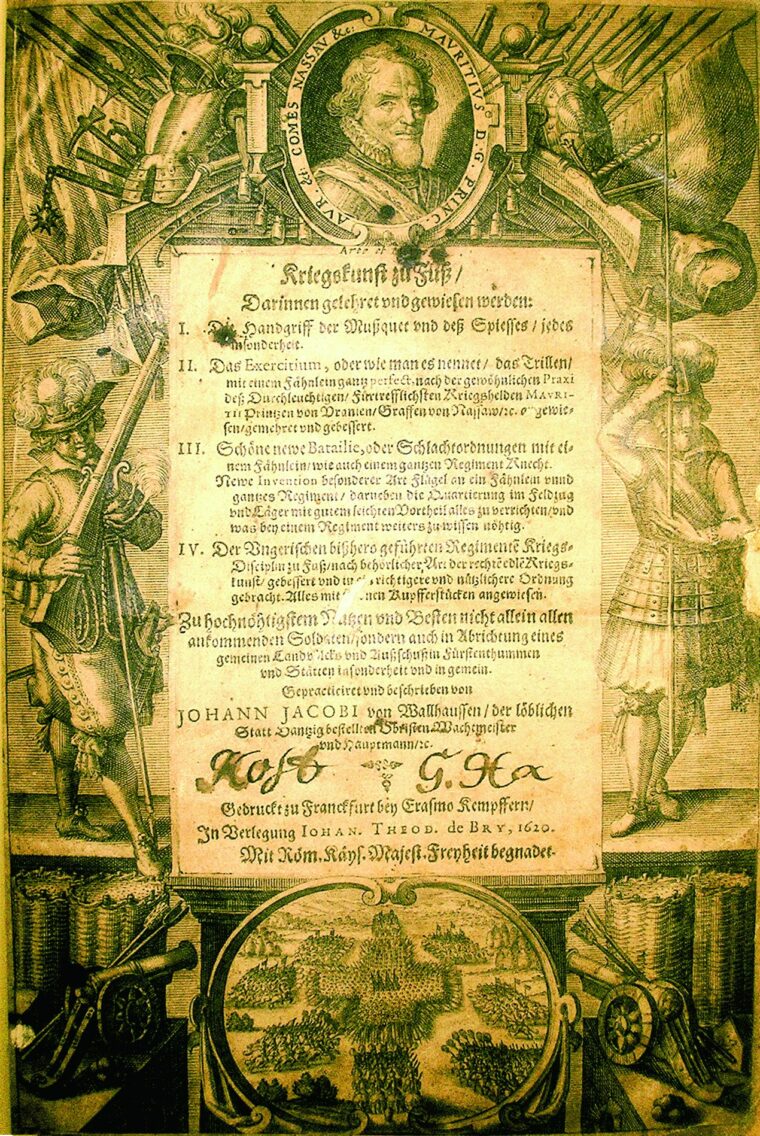 MAVRITIVS D.G. PRINC. AVR. &c. COMES NASSAV &c.
Arte et
Kriegskunst zu Fuß/
Darinnen gelehret vnd gewiesen werden:
I. Die Handgriff der Mußquet vnd deß Spiesses/ jedes
insonderheit.
II. Das Exercitium, oder wie man es nennet/ das Trillen/
mit einem Fähnlein gantz perfect, nach der gewöhnlichen Praxi
deß Durchleuchtigen/ Fürtrefflichsten Kriegshelden MAVRI-
TII Printzen von Vranien/ Graffen von Nassaw/ꝛc. gewie-
sen/ gemehret vnd gebessert.
III. Schöne newe Batailie, oder Schlachtordnungen mit ei-
nem Fähnlein/ wie auch einem gantzen Regiment Knecht.
Newe Invention besonderer Art Flügel an ein Fähnlein vnnd
gantzes Regiment/ darneben die Quartierung im Feldzug
vnd Läger mit gutem leichten Vortheil alles zu verrichten/ vnd
was bey einem Regiment weiters zu wissen nöhtig.
IV. Der Vngerischen bißhero geführten Regimentẽ Kriegs-
Disciplin zu Fuß/ nach behörlicher Art der rechtẽ edlẽ Kriegs-
kunst/ gebessert vnd in richtigere vnd nützlichere Ordnung
gebracht. Alles mit Kupfferstücken angewiesen.
Zu hochnöhtigstem Nutzen vnd Besten nicht allein allen
ankommenden Soldaten/ sondern auch in Abrichtung eines
gemeinen Landvolcks vnd Außschuß in Fürstenthummen
vnd Stätten insonderheit vnd in gemein.
Gepracticiret vnd beschrieben von
JOHANN JACOBI von Wallhausen/ der löblichen
Statt Dantzig bestellten Obristen Wachtmeister
vnd Hauptmann/ꝛc.
Gedruckt zu Franckfurt bey Erasmo Kempffern/
In Verlegung IOHAN. THEOD. de BRY, 1620.
Mit Röm. Käys. Majest. Freyheit begnadet.